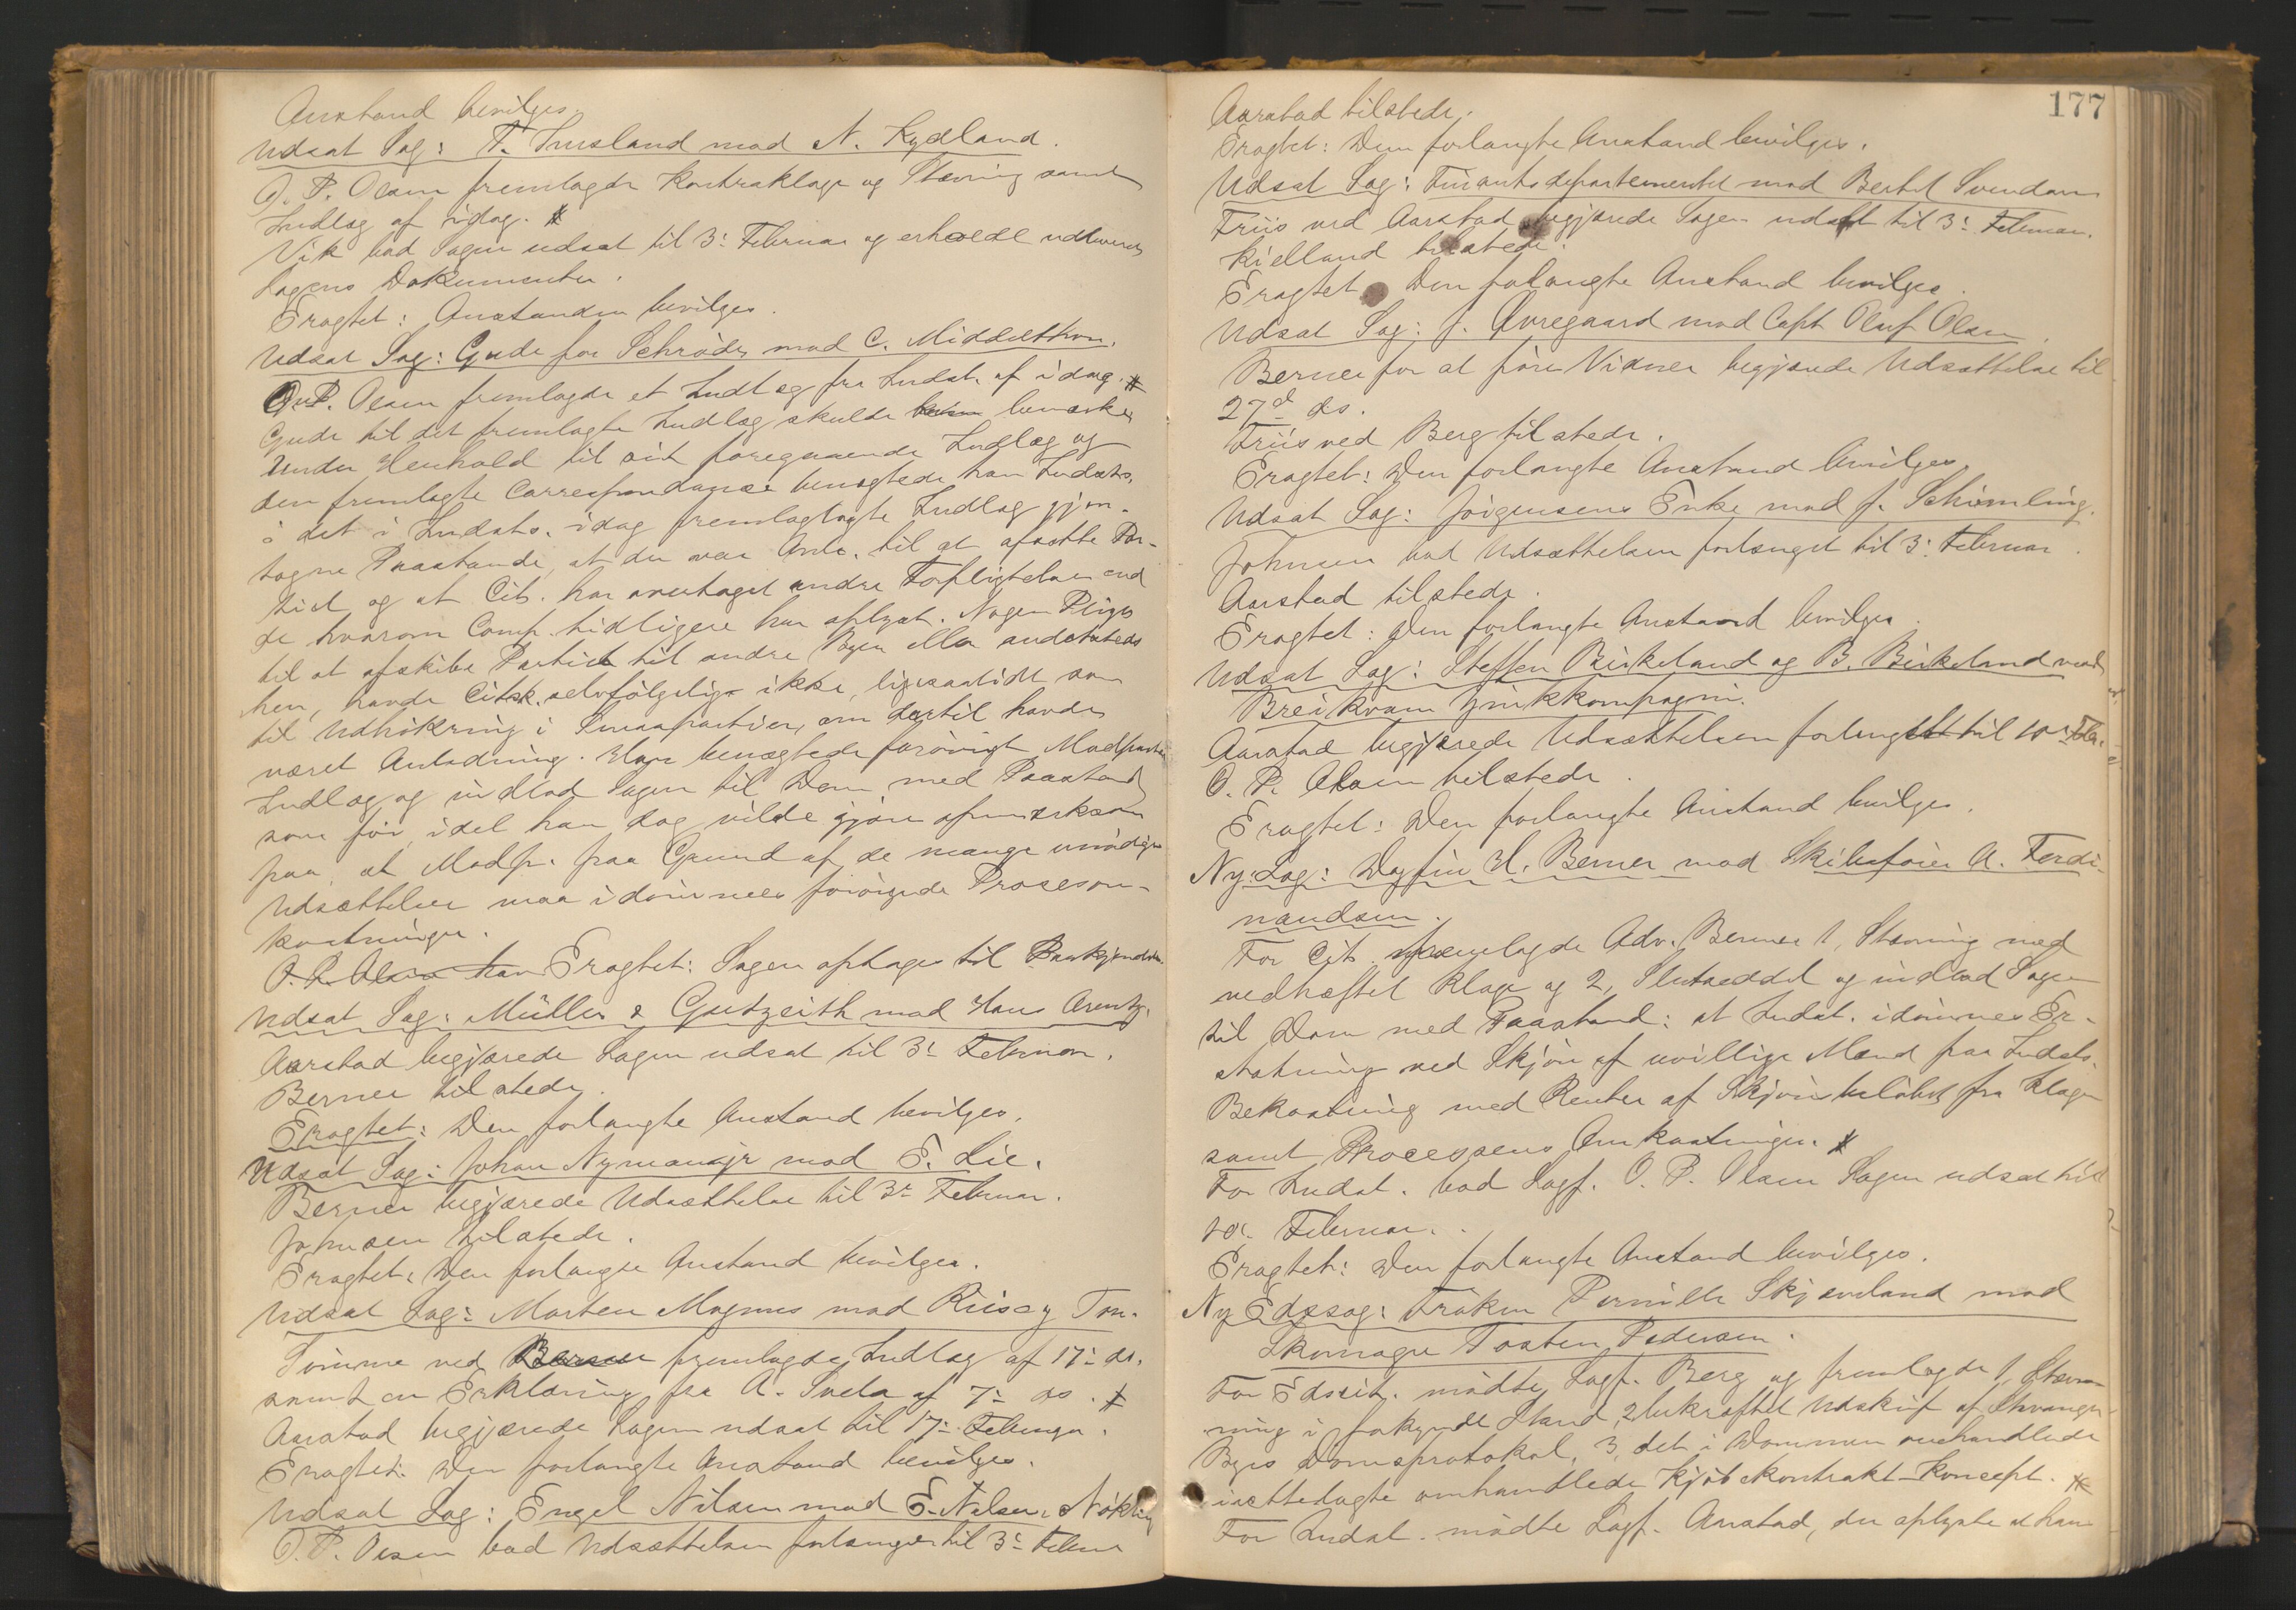 Anstand bevilges.
Udsat Sag: T. Tuesland mod N. Kydland.
O. P. Olsen fremlagde Kontraklage og Stævning samt
Indlæg af idag. #
Vik bad Sagen udsat til 3: Februar og erholdt udleveret
Sagens Dokumenter.
Eragtet: Anstanden bevilges.
Udsat Sag: Gude for Schröder mod C. Middelthon.
O. P. Olsen fremlagde et Indlæg fra Indst. af idag. #
Gude til det fremlagte Indlæg skulde bemærke
Under Henhold til sit foregaaende Indlæg og
den fremlagte Correspondanse benægtede han Indsts.
i det i Indsts. idag fremlaglagte Indlæg gjen-
tagne Paastande, at der var Anl. til at afsætte Par-
tiet og at Cit. har overtaget andre Forpligtelser end
de hvorom Comp. tidligere har oplyst. Nogen Pligt
til at afskibe Partiet til andre Byer eller andetsteds
hen, havde Citsk. selvfølgelig ikke, ligesaalidt som
til Udhökring i Smaapartier, om dertil havde
været Anledning. Han benægtede forövrigt Modparten
Indlæg og indlod Sagen til Dom med Paastand
som för, idet han dog vilde gjöre opmærksom
paa, at Modp. paa Grund af de mange unödige
Udsættelser maa idömmes forögede Procesom-
kostninger.
O. P. Olsen han Eragtet: Sagen optages til Paakjendelse.
Udsat Sag: Müller & Gutzeith mod Hans Arentz.
Aarstad begjærede Sagen udsat til 3: Februar.
Berner tilstede.
Eragtet: Den forlangte Anstand bevilges.
Udsat Sag: Johan Nyman jr mod E. Lie.
Berner begjærede Udsættelse til 3: Februar.
Johnsen tilstede.
Eragtet: Den forlangte Anstand bevilges.
Udsat Sag: Morten Magnus mod Riis og Ton.
Sömme ved Berner fremlagde Indlæg af 17: ds.
samt en Erklæring fra A. Svela af 7: ds. #
Aarstad begjærede Sagen udsat til 17: Februar.
Eragtet: Den forlangte Anstand bevilges.
Udsat Sag: Engel Nilsen mod E. Nilsen, Nökling
O. P. Olsen bad Udsættelsen forlænget til 3: Februar
177
Aarstad tilstede.
Eragtet: Den forlangte Anstand bevilges.
Udsat Sag: Finantsdepartementet mod Bertel Svendsen
Friis ved Aarstad begjærede Sagen udsat til 3: Februar.
Kielland tilstede.
Eragtet Den forlangte Anstand bevilges.
Udsat Sag: J. Øvregaard mod Capt Oluf Olsen
Berner for at före Vidner begjærede Udsættelse til
27d ds.
Friis ved Berg tilstede.
Eragtet: Den forlangte Anstand bevilges
Udsat Sag: Jörgensens Enke mod J. Schiemling.
Johnsen bad Udsættelsen forlænget til 3: Februar.
Aarstad tilstede.
Eragtet: Den forlangte Anstand bevilges.
Udsat Sag: Steffen Birkeland og B. Birkeland mod
Breikvam Zinkkompagni.
Aarstad begjærede Udsættelsen forlænget til 10: Febr.
O. P. Olsen tilstede.
Eragtet: Den forlangte Anstand bevilges.
Ny Sag: Dagfin H. Berner mod Skibsförer A. Ferdi-
nandsen.
For Cit. fremlagde Adv. Berner 1, Stævning med
vedhæftet Klage og 2, Slutseddel og indlod Sagen
til Dom med Paastand: at Indst. idömmes Er-
statning ved Skjön af uvillige Mænd paa Indsts.
Bekostning med Renter af Skjönsbelöbet fra Klagen
samt Processens Omkostninger. #
For Indst. bad Sagf. O. P. Olsen Sagen udsat til
10: Februar.
Eragtet: Den forlangte Anstand bevilges.
Ny Edssag: Fröken Pernille Skjæveland mod
Skomager Tosten Pedersen.
For Edscit. mödte Sagf. Berg og fremlagde 1, Stæv-
ning i forkyndt Stand, 2 bekræftet Udskrift af Stavanger
Byes Domsprotokol, 3, det i Dommen omhandlede
isættelagte omhandlede Kjöbekontrakt-Koncept. #
For Indst. mödte Sagf. Aarstad, der oplyste at han